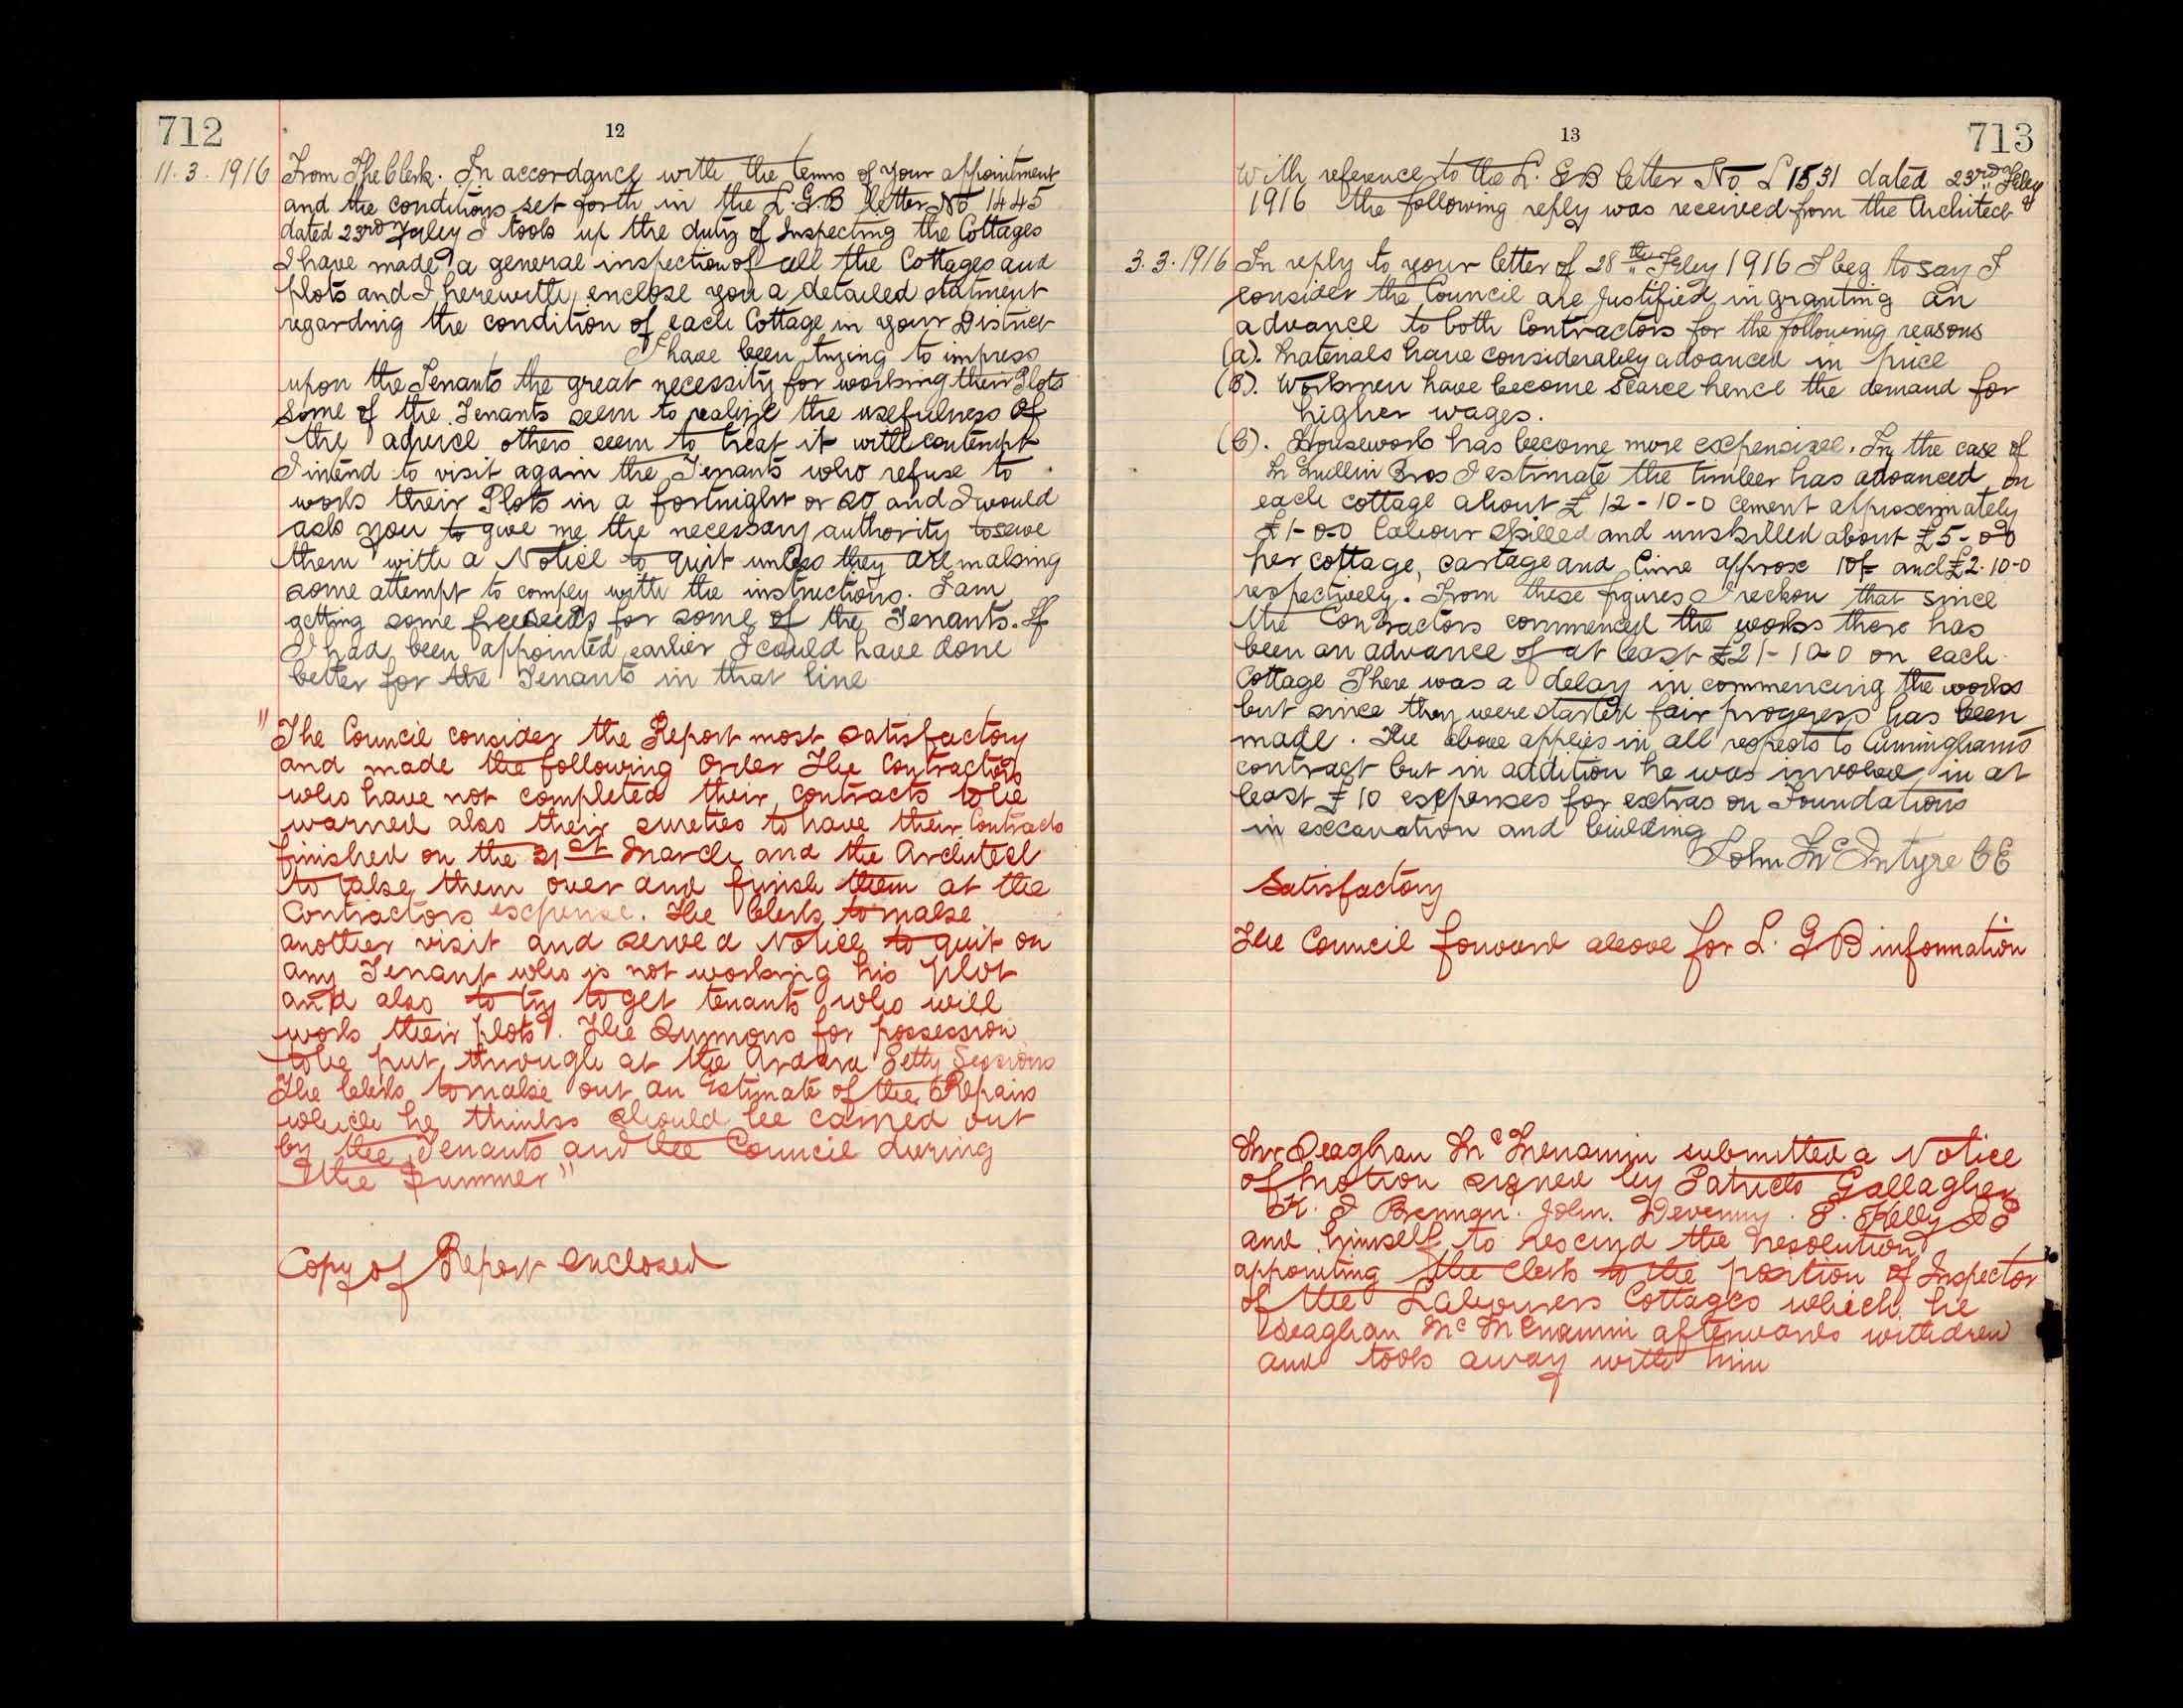 712
12
11.3.1916 From The Clerk. In accordance with the terms of your appointment
and the conditions set forth in the L.G.B letter No 1445
dated 23rd Febey I took up the duty of Inspecting the Cottages
I have made a general inspection of all the Cottages and
plots and I herewith enclose you a detailed statment
regarding the condition of each Cottage in your District
I have been trying to impress
upon the Tenants the great necessity for working their Plots
Some of the Tenants seem to realize the usefulness of
the advice others seem to treat it with contempt
I intend to visit again the Tenants who refuse to
work their Plots in a fortnight or so and I would
ask you to give me the necessary authority to serve
them with a Notice to quit unless they are making
some attempt to comply with the instructions. I am
getting some free seeds for some of the Tenants. If
I had been appointed earlier I could have done
better for the Tenants in that line
"The Council consider the Report most satisfactory
and made the following Order The Contractors
who have not completed their contracts to be
warned also their sureties to have their Contracts
finished on the 31st March and the Architect
to take them over and finish them at the
Contractors expense. The Clerk to make
another visit and serve a Notice to quit on
any Tenant who is not working his plot
and also to try to get tenants who will
work their plots. The Summons for possession
to be put through at the Ardara Petty Sessions
The Clerk to make out an Estimate of the Repairs
which he thinks should be carried out
by the Tenants and the Council during
the Summer"
Copy of Report enclosed
13
713
With reference to the L. G B letter No L 1531 dated 23rd Febey
1916 the following reply was received from the Architect
3.3.1916 In reply to your letter of 28th Febey 1916 I beg to say I
consider the Council are justified in granting an
advance to both Contractors for the following reasons
(a). Materials have considerably advanced in price
(B). Workmen have become scarce hence the demand for
higher wages.
(C). Housework has become more expensive. In the case of
Bros I estimate the timber has advanced on
each cottage about £ 12-10-0 cement approximately
£1-0-0 labour skilled and unskilled about £5-0-0
per cottage, cartage and lime approx 10/= and £2.10-0
respectively. From these figures I reckon that since
the Contractors commenced the works there has
been an advance of at least £21-10-0 on each
Cottage There was a delay in commencing the works
but since they were started fair progress has been
made. The above applies in all respects to Cunninghams
contract but in addition he was involved in at
least £10 expenses for extras on Foundations
in excavation and building
John McIntyre CE
Satisfactory
The Council forward above for L. G B information
Mr Seaghan McMenamin submitted a Notice
of Motion signed by Patrick Gallagher
Brennan. John. Devenny. P. Kelly
and himself to rescind the resolution
appointing the Clerk to the position of Inspector
of the Labourers Cottages which he
Seaghan McMenamin afterwards withdrew
and took away with him